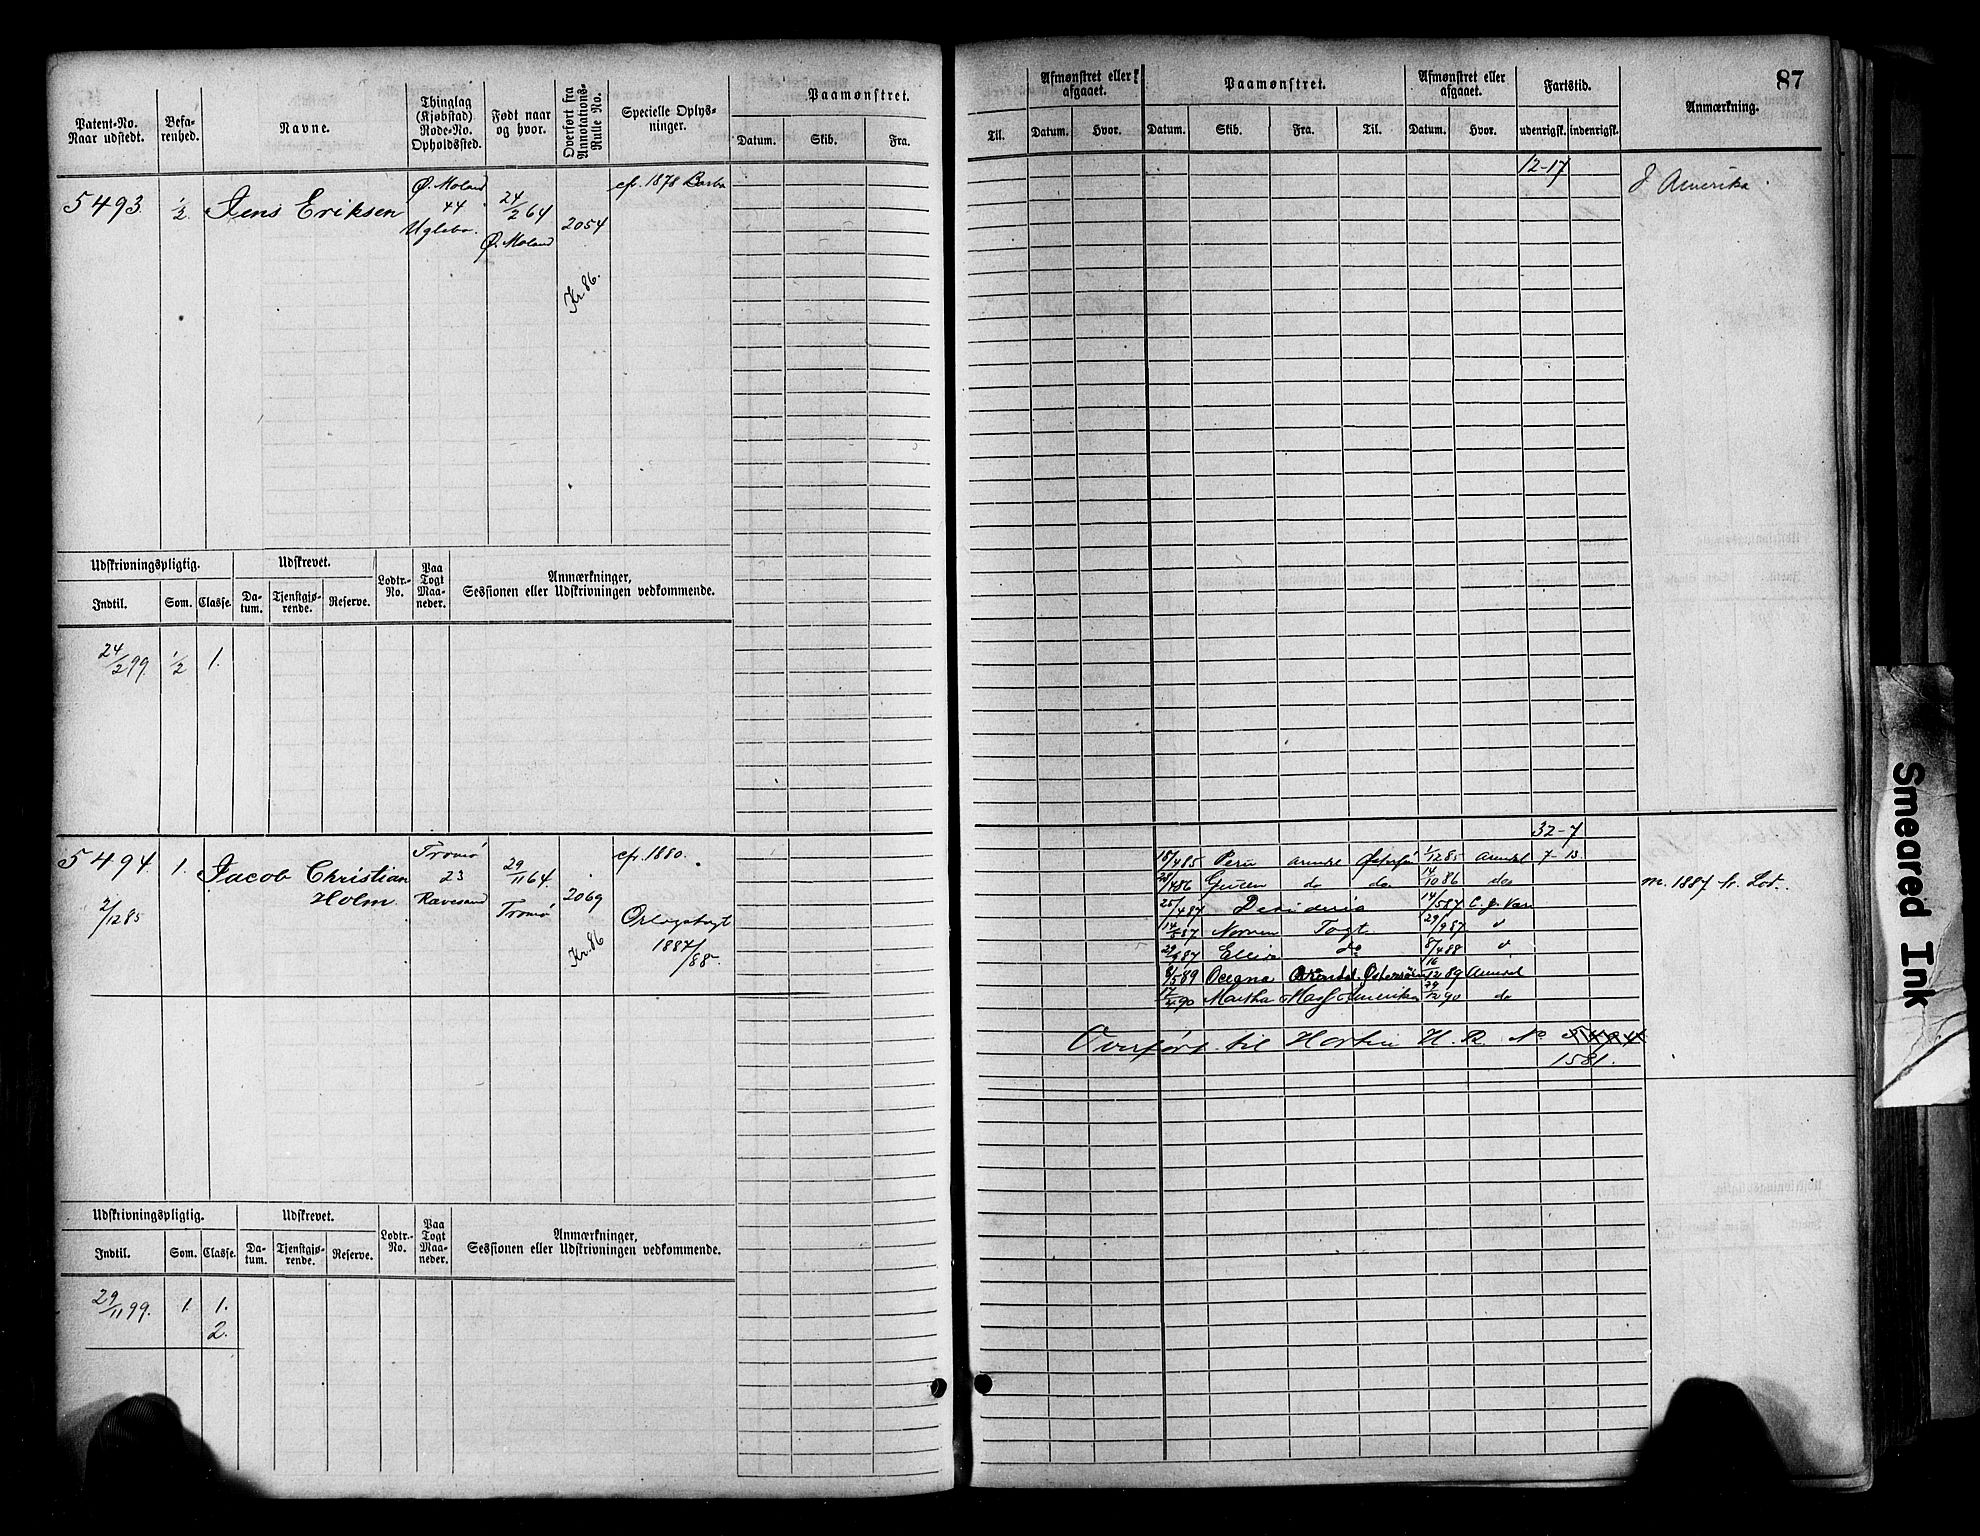 87
Patent-No. Naar udstedt.
Befarenhed.
Navne.
Thinglag (Kjøbstad) Rode-No. Opholdssted.
Født naar og hvor.
Overført fra Annotations-Rulle No.
Specielle Oplysninger.
Paamønstret.
Datum. Skib. Fra.
Til.
Afmønstret eller afgaaet.
Datum. Hvor.
Paamønstret.
Datum. Skib. Fra. Til.
Afmønstret eller afgaaet.
Datum. Hvor.
Fartstid.
udenrigsk. indenrigsk.
Anmærkning.
5493. 1/2 Jens Eriksen
Ø. Moland
44
24/2 64
Ø. Moland
2054
Kr. 86.
cfr. 1878
12-17
I Amerika.
Udskrivningspligtig. Udskrevet. Lodtr.-No. Paa Togt Maaneder. Anmærkninger, Sessionen eller Udskrivningen vedkommende.
Indtil. Som. Classe. Datum. Tjenstgjørende. Reserve.
24/2 99. 1/2 1.
5494. 1. Jacob Christian
Holm
2/12 85
Tromø
23
Ravesand
29/11 64.
Tromø
2069
Kr. 86
cfr. 1880.
Orlogstogt
1887/88.
32-7
15/4 85 Peru Arendal 1/12 85 Arendal 7-13
28/4 86 do do 14/10 86 do
25/4 87 14/5 87
14/5 87 Nornen Togt 29/9 87
29/9 87 Ellida do 8/4 88
8/5 89 Oceana Arendal Østersøen 16/12 89 Arendal
17/4 90 Martha Amerika 29/12 90 do
m. 1887 fr. Lod.
Overført til Horten H. R. No 5494
1581.
Udskrivningspligtig. Udskrevet. Lodtr.-No. Paa Togt Maaneder. Anmærkninger, Sessionen eller Udskrivningen vedkommende.
Indtil. Som. Classe. Datum. Tjenstgjørende. Reserve.
29/11 99. 1. 1.
2.
Smeared Ink